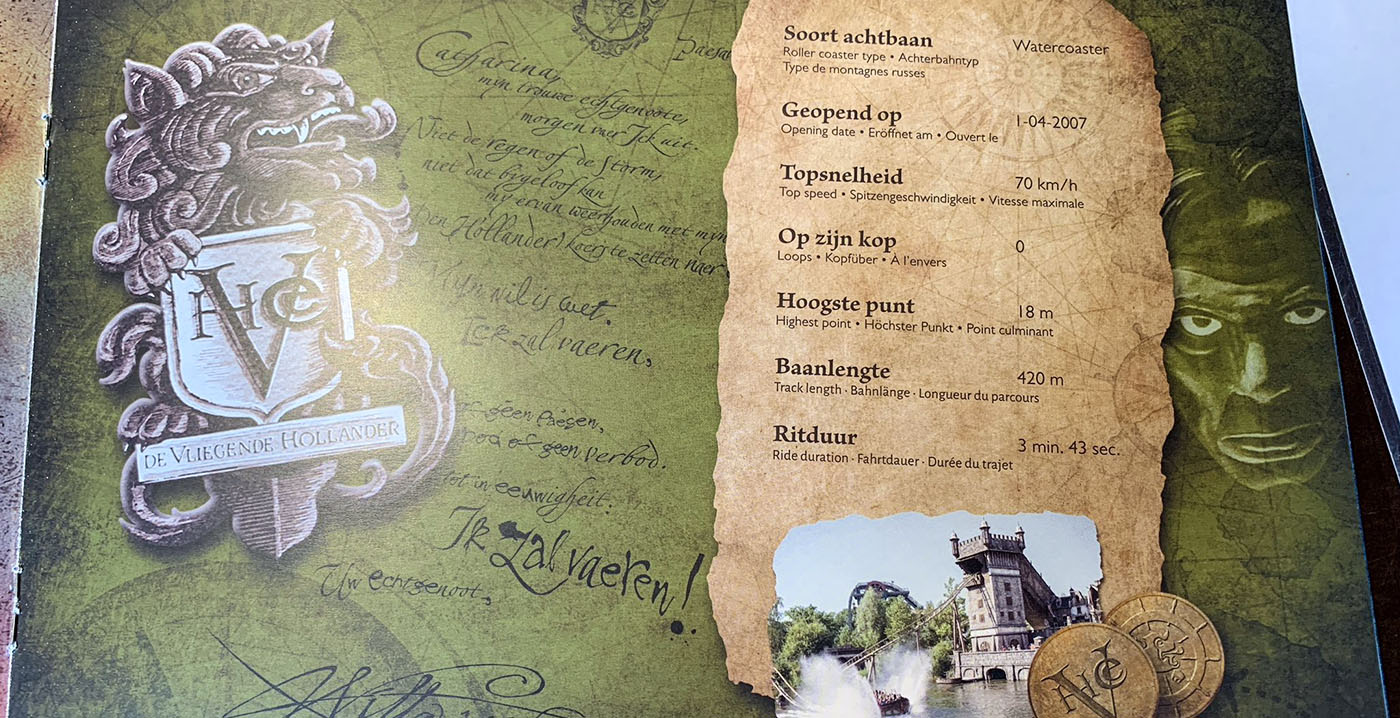 VHCC
DE VLIEGENDE HOLLANDER
Catharina,
mijn trouwe echtgenoote,
morgen vaer Ick uit.
Niet de regen of de storm,
niet dat bygeloof kan
my ervan weerhouden met mijn
(Den Hollander) koers te zetten naer
Mijn wil is wet.
Ick zal vaeren,
geen Paesen,
of geen verbod.
tot in eeuwigheit.
Ik zal vaeren!
Uw echtgenoot,
Soort achtbaan
Watercoaster
Roller coaster type • Achterbahntyp
Type de montagnes russes
Geopend op
1-04-2007
Opening date • Eröffnet am • Ouvert le
Topsnelheid
70 km/h
Top speed • Spitzengeschwindigkeit • Vitesse maximale
Op zijn kop
0
Loops • Kopfüber • À l'envers
Hoogste punt
18 m
Highest point • Höchster Punkt • Point culminant
Baanlengte
420 m
Track length · Bahnlänge · Longueur du parcours
Ritduur
3 min. 43 sec.
Ride duration · Fahrtdauer · Durée du trajet